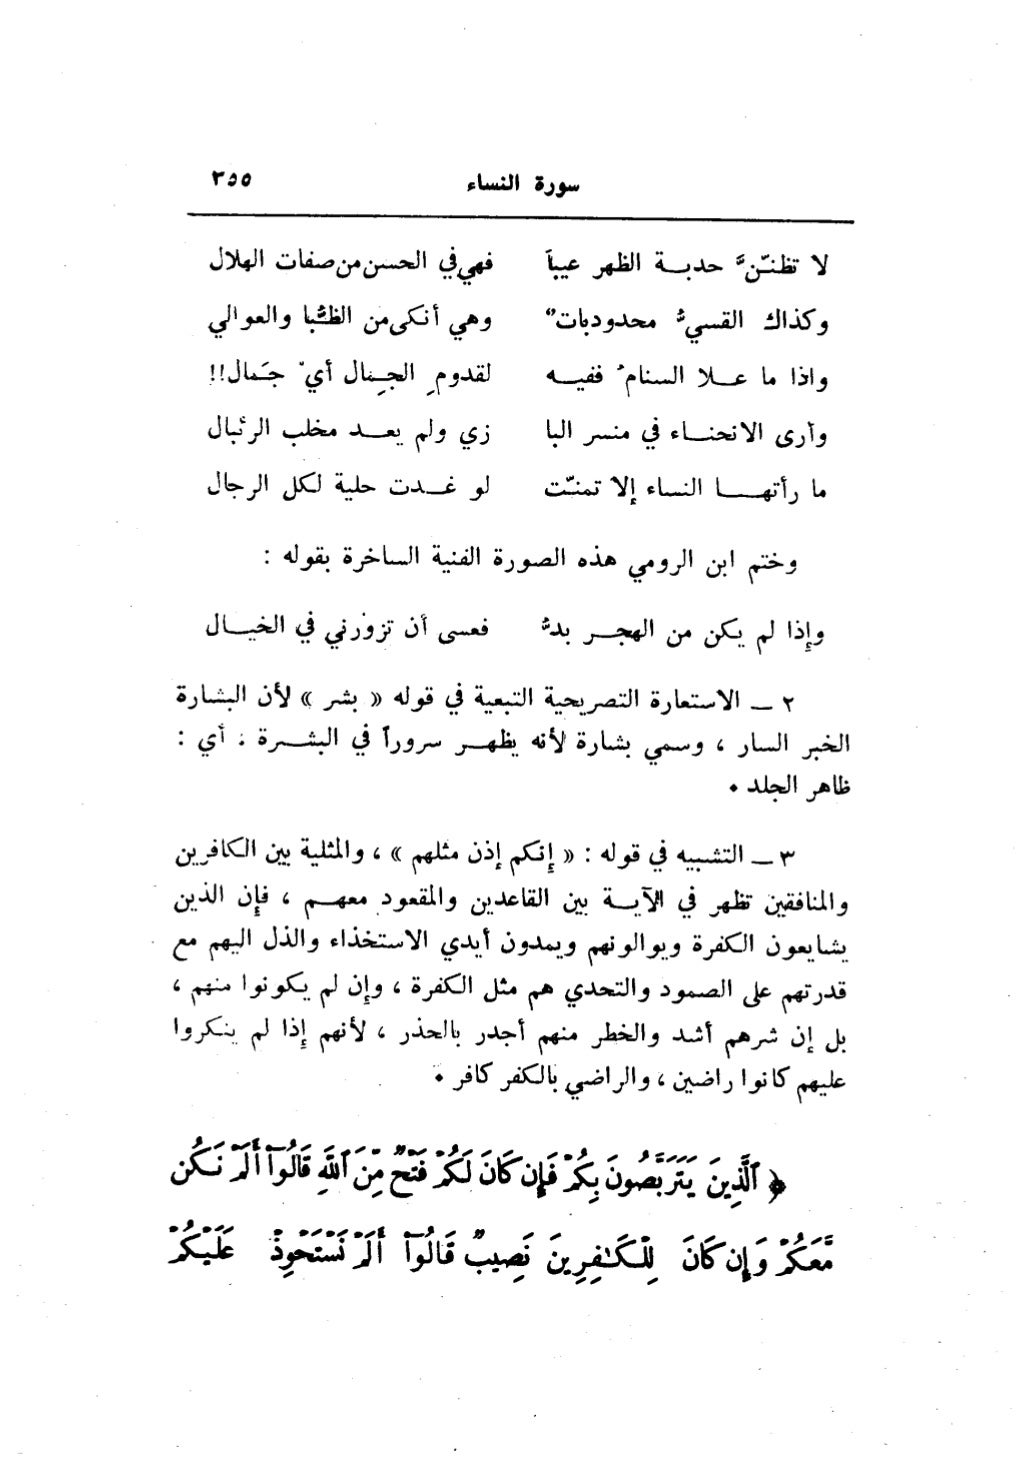 سورة النساء ٣٥٥
لا تظننّ حدبة الظهر عيباً فهي في الحسن من صفات الهلال
وكذاك القسيّ محدودبات وهي أنكى من الظُّبا والعوالي
واذا ما علا السنامُ ففيه لقدومِ الجِمال أيّ جَمال!!
وأرى الانحناء في منسر البا زي ولم يعد مخلب الرئبال
ما رأتها النساء إلا تمنّت لو غدت حلية لكل الرجال
وختم ابن الرومي هذه الصورة الفنية الساخرة بقوله :
وإذا لم يكن من الهجر بدّ فعسى أن تزورني في الخيال
٢ ـ الاستعارة التصريحية التبعية في قوله « بشر » لأن البشارة
الخبر السار ، وسمي بشارة لأنه يظهر سروراً في البشرة ، أي :
ظاهر الجلد .
٣ ـ التشبيه في قوله : « إِنكم إذن مثلهم » ، والمثلية بين الكافرين
والمنافقين تظهر في الآية بين القاعدين والمقعود معهم ، فإن الذين
يشايعون الكفرة ويوالونهم ويمدون أيدي الاستخذاء والذل اليهم مع
قدرتهم على الصمود والتحدي هم مثل الكفرة ، وإن لم يكونوا منهم ،
بل إن شرهم أشد والخطر منهم أجدر بالحذر ، لأنهم إذا لم ينكروا
عليهم كانوا راضين ، والراضي بالكفر كافر .
﴿ ٱلَّذِينَ يَتَرَبَّصُونَ بِكُمْ فَإِن كَانَ لَكُمْ فَتْحٌ مِّنَ ٱللَّهِ قَالُوٓا۟ أَلَمْ نَكُن
مَّعَكُمْ وَإِن كَانَ لِلْكَـٰفِرِينَ نَصِيبٌ قَالُوٓا۟ أَلَمْ نَسْتَحْوِذْ عَلَيْكُمْ